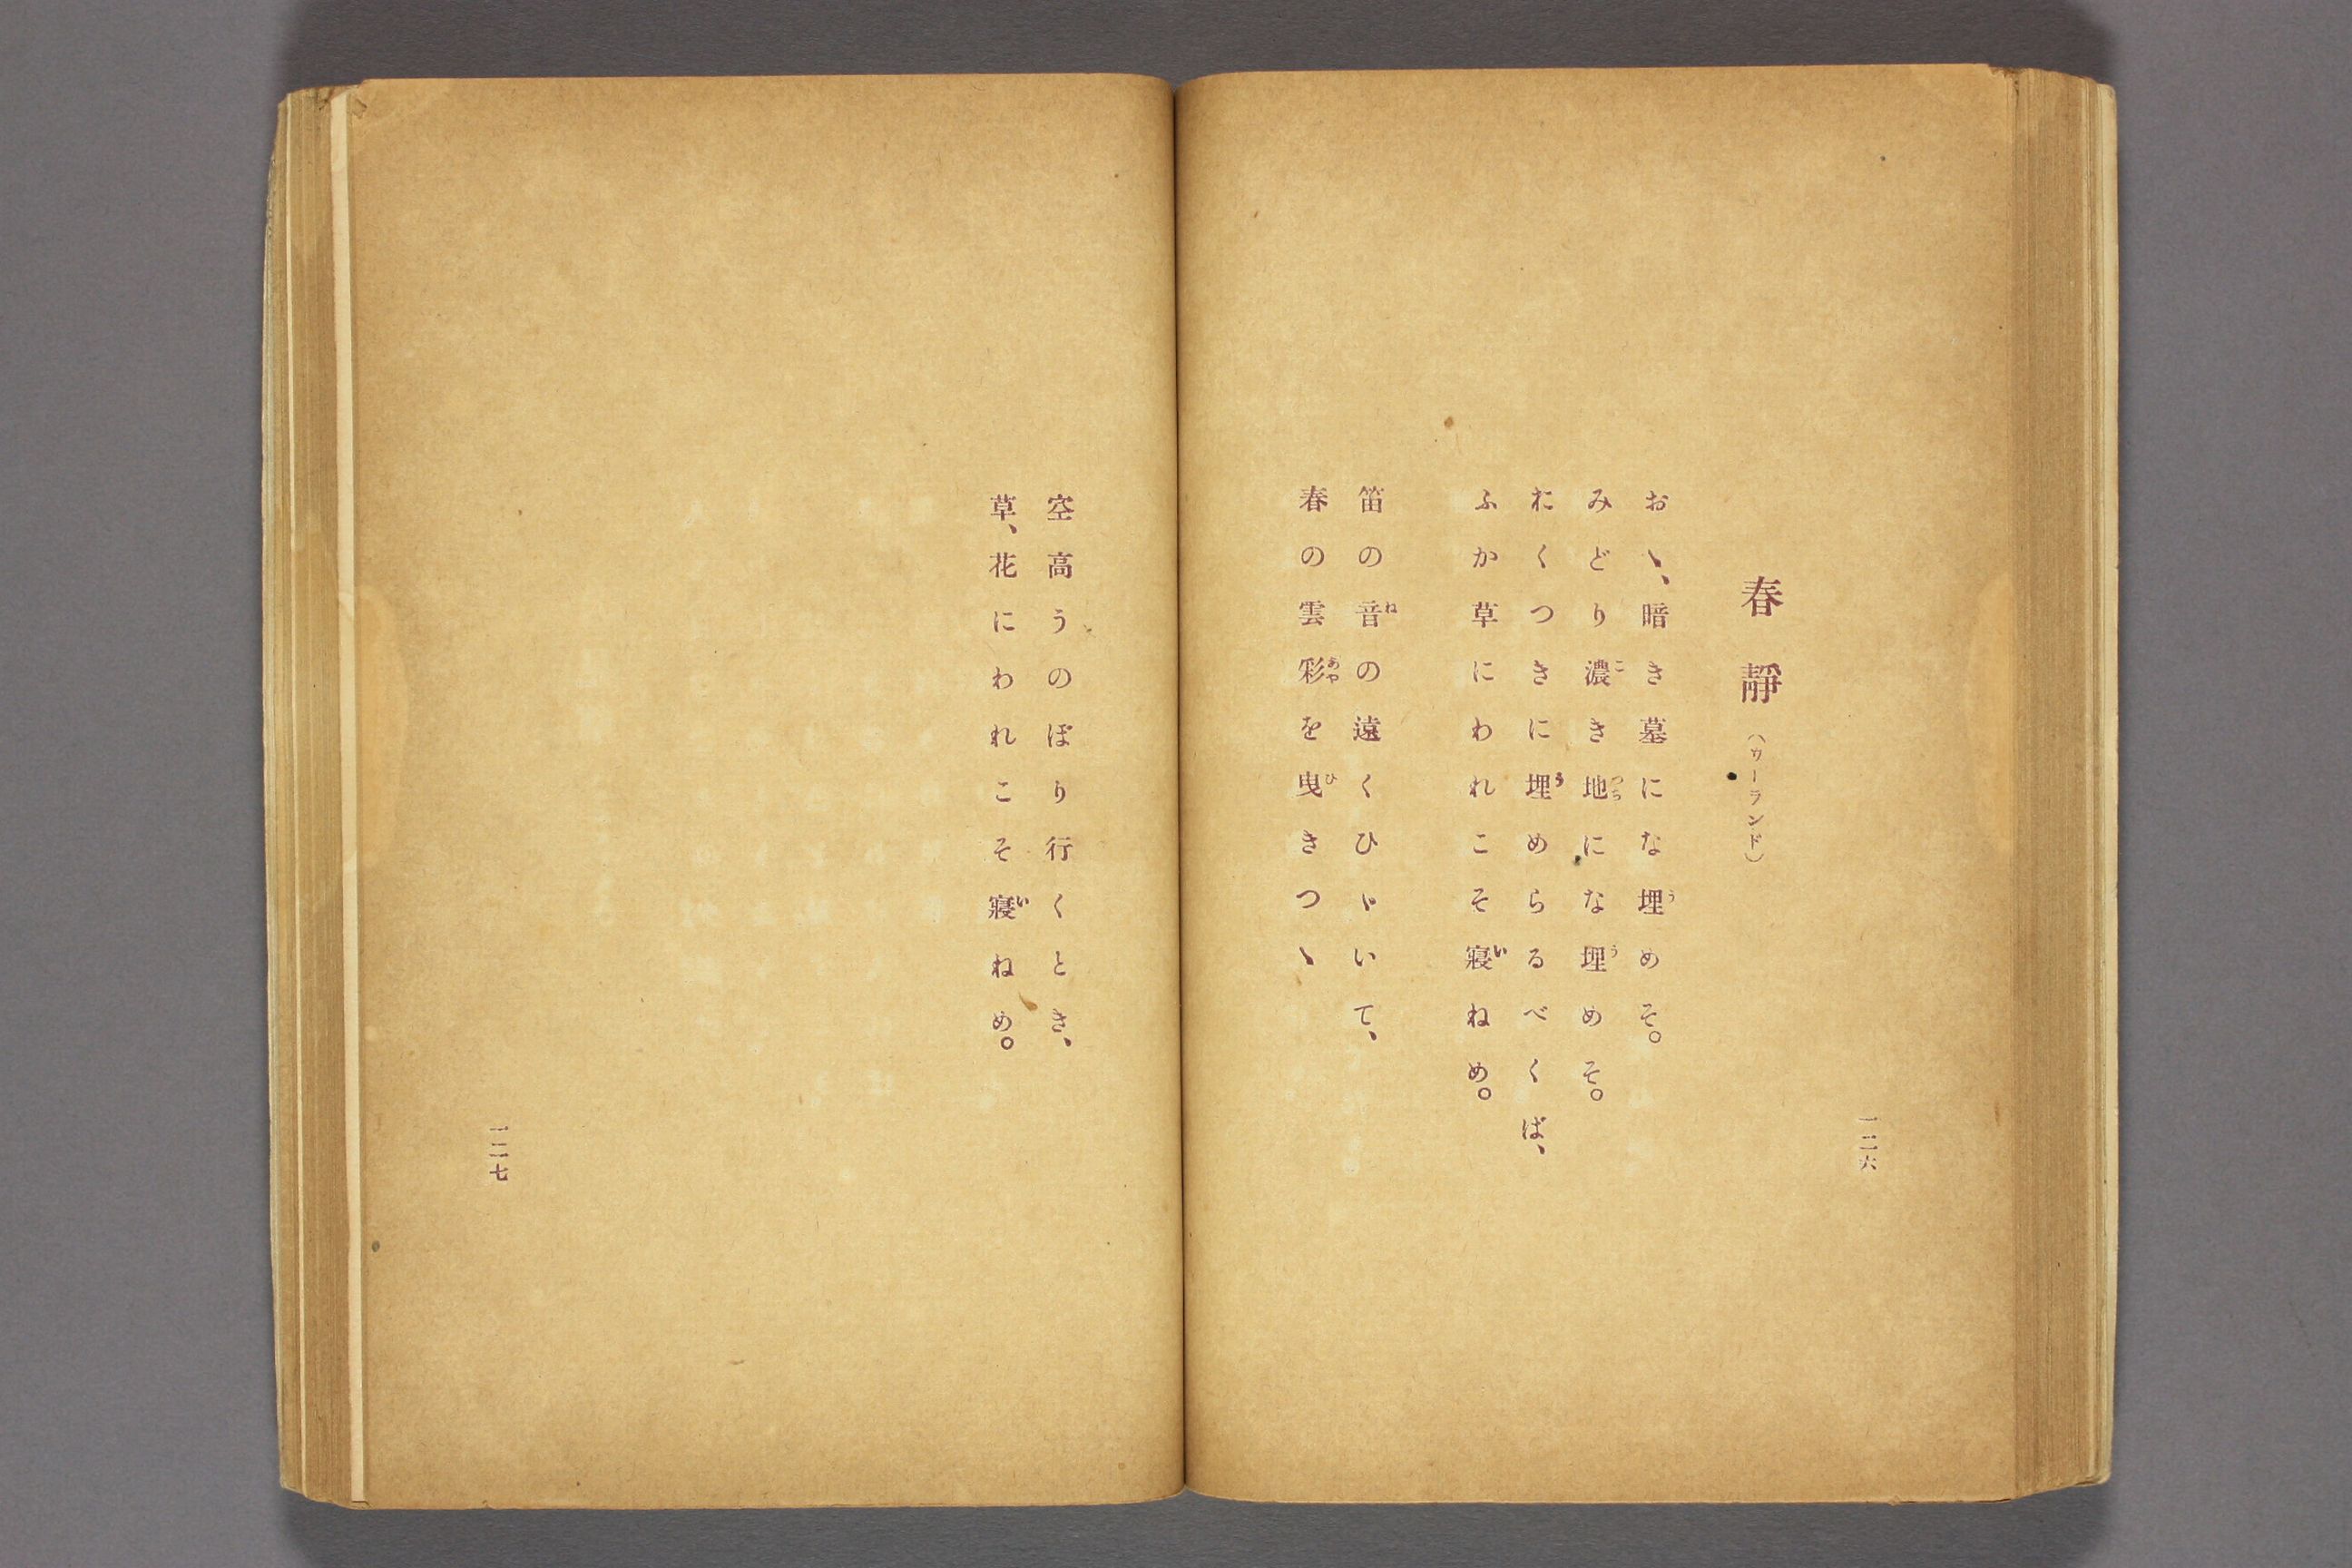 一二六
春靜（ウーランド）
おゝ、暗き墓にな埋めそ。
う
みどり濃き地にな埋めそ。
こ つち う
おくつきに埋めらるべくば、
う
ふか草にわれこそ寢ねめ。
い
笛の音の遠くひゞいて、
ね
春の雲彩を曳きつゝ
あや ひ
空高うのぼり行くとき、
草、花にわれこそ寢ねめ。
い
一二七